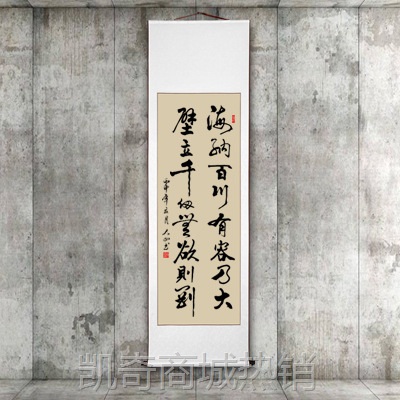 海納百川有容乃大
壁立千仞無欲則剛
凯奇商城热销